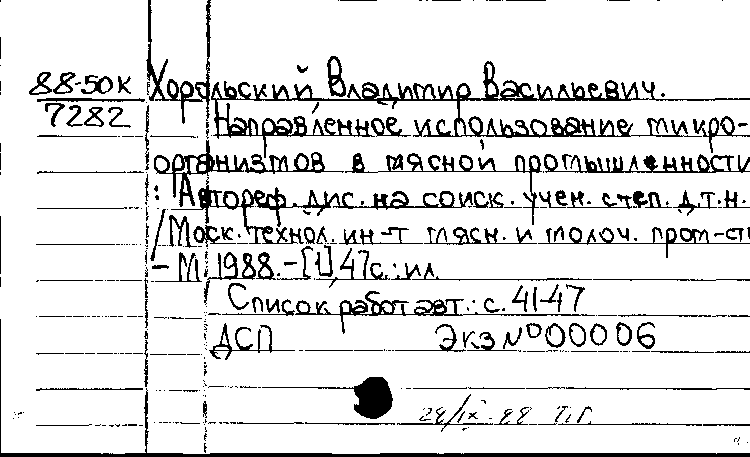 88-50К Хорольский, Владимир Васильевич.
7282 Направленное использование микро-
организмов в мясной промышленности
: Автореф. дис. на соиск. учен. степ. д.т.н.
/Моск. технол. ин-т мясн. и молоч. пром-сти
- М 1988. - [1], 47с.: ил.
Список работ авт.: с. 41-47
ДСП Экз №00006
28/IX-88